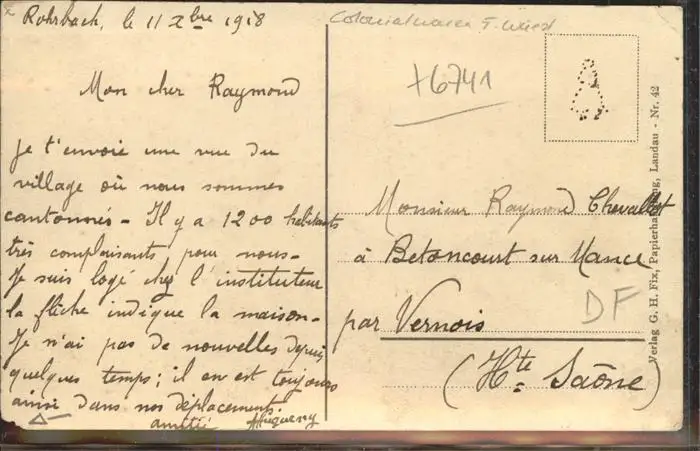 Rohrbach, le 11 Xbre 1918
Mon cher Raymond
Je t'envoie une vue du
village où nous sommes
cantonnés - Il y a 1200 habitants
très complaisants pour nous -
Je suis logé chez l'instituteur
la flèche indique la maison -
Je n'ai pas de nouvelles depuis
quelques temps ; il en est toujours
ainsi dans nos déplacements.
amitié Hugueny
Colonialwaren T.
+6741
Monsieur Raymond Chevallot
à Betoncourt sur Mance
par Vernois
(Hte Saône)
DF
Verlag G. H. Fix, Landau - Nr. 42